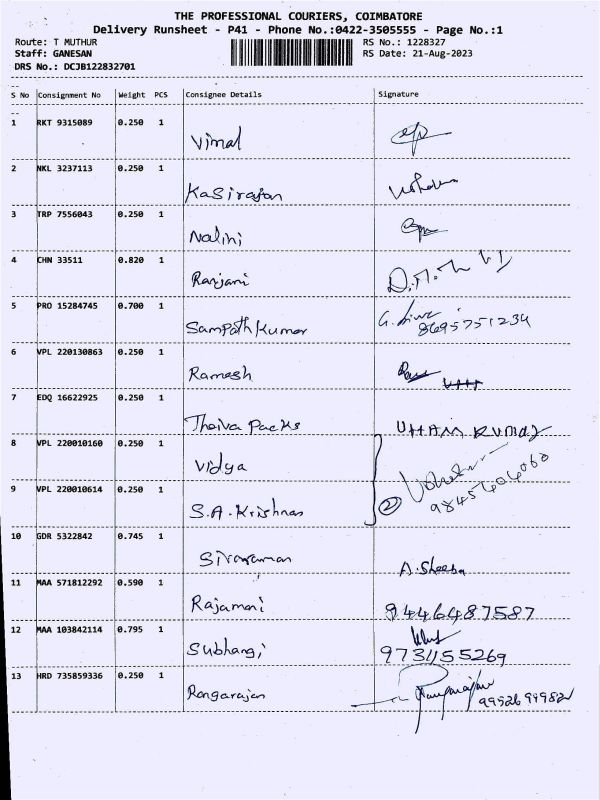 THE PROFESSIONAL COURIERS, COIMBATORE
Delivery Runsheet - P41 - Phone No.:0422-3505555 - Page No.:1
Route: T MUTHUR RS No.: 1228327
Staff: GANESAN RS Date: 21-Aug-2023
DRS No.: DCJB122832701
S No Consignment No Weight PCS Consignee Details Signature
1 RKT 9315089 0.250 1
Vimal
2 NKL 3237113 0.250 1
Kasirajan
3 TRP 7556043 0.250 1
Nalini
4 CHN 33511 0.820 1
Ranjani
5 PRO 15284745 0.700 1
Sampath Kumar
8695751234
6 VPL 220130863 0.250 1
Ramesh
7 EDQ 16622925 0.250 1
Thaiva Packs
8 VPL 220010160 0.250 1
Vidya
9 VPL 220010614 0.250 1
S.A. Krishnan 2
10 GDR 5322842 0.745 1
Sivaraman A. Sheeba
11 MAA 571812292 0.590 1
Rajamani 9446487587
12 MAA 103842114 0.795 1
Subhangi
13 HRD 735859336 0.250 1
Rangarajan Rangarajan